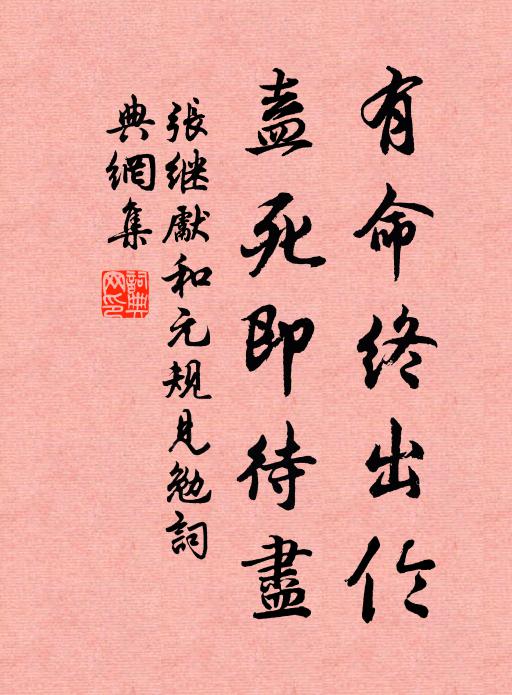 有命終出
盍死即待盡
張继獻和元規見勉詞
典網集
詞典
网印